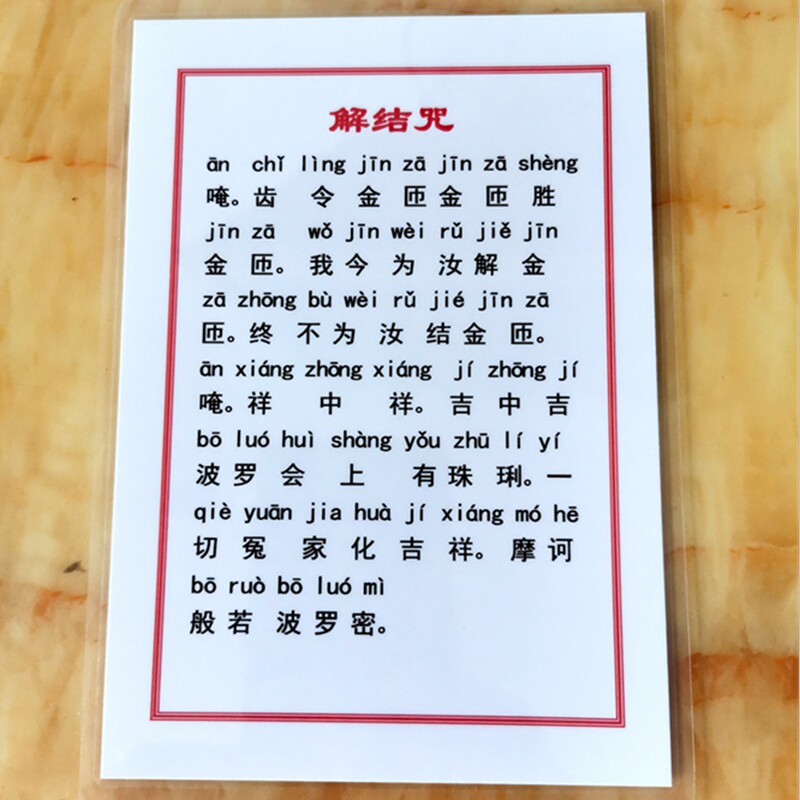 解结咒
ān chǐ lìng jīn zā jīn zā shèng
唵。齿 令 金 匝 金 匝 胜
jīn zā wǒ jīn wèi rǔ jiě jīn
金 匝。我 今 为 汝 解 金
zā zhōng bù wèi rǔ jié jīn zā
匝。终 不 为 汝 结 金 匝。
ān xiáng zhōng xiáng jí zhōng jí
唵。祥 中 祥。吉 中 吉
bō luó huì shàng yǒu zhū lí yí
波 罗 会 上 有 珠 琍。一
qiè yuān jia huà jí xiáng mó hē
切 冤 家 化 吉 祥。摩 诃
bō ruò bō luó mì
般 若 波 罗 密。